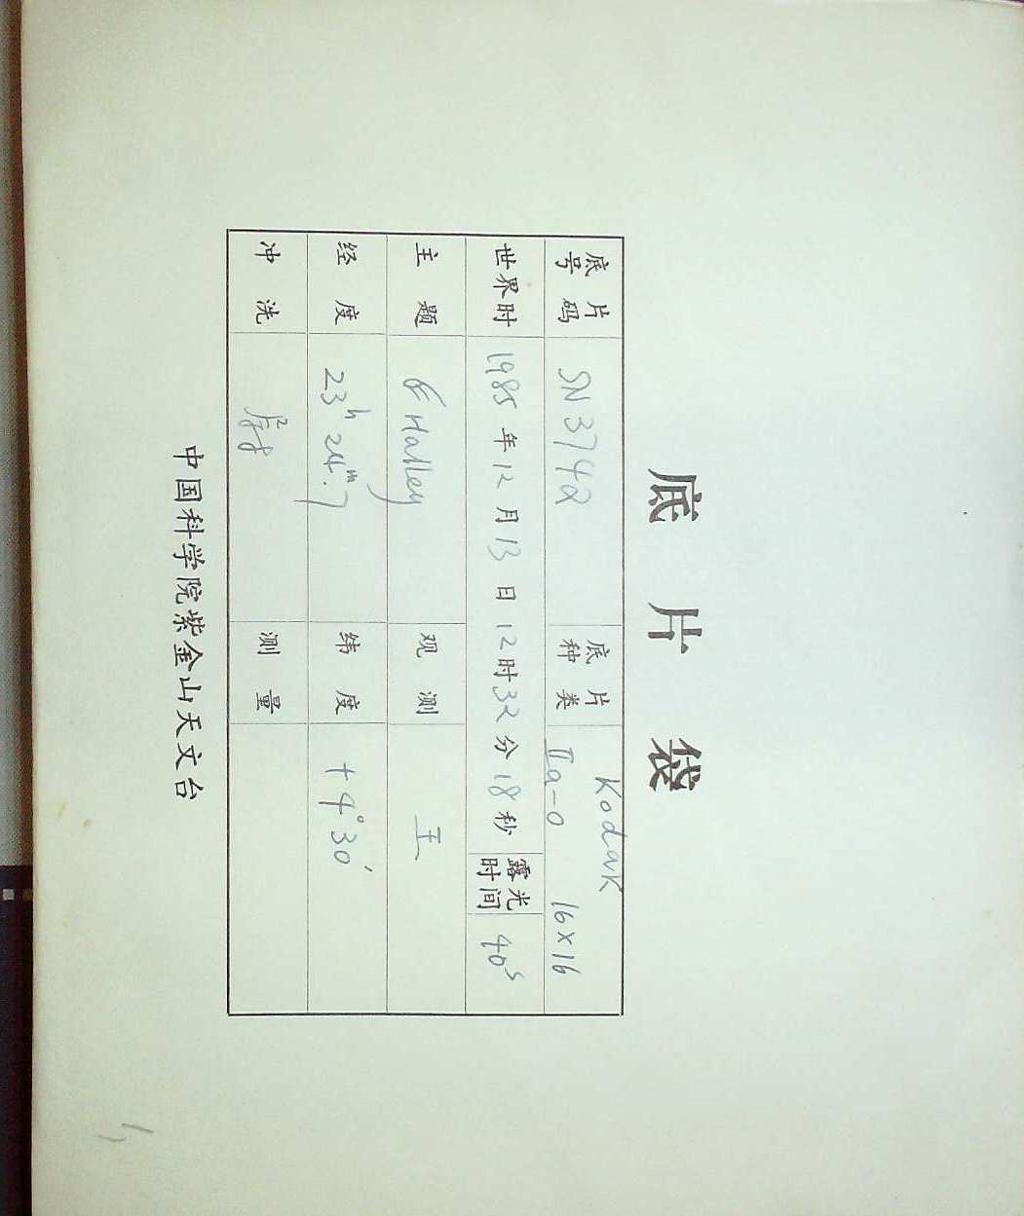 底片袋
底片号码 SN3742 底片种类 Kodak IIa-O 16×16
世界时 1985年12月13日12时32分18秒 露光时间 40s
主题 Halley 观测 王
经度 23h 24m.7 纬度 +4°30′
冲洗 测量
中国科学院紫金山天文台